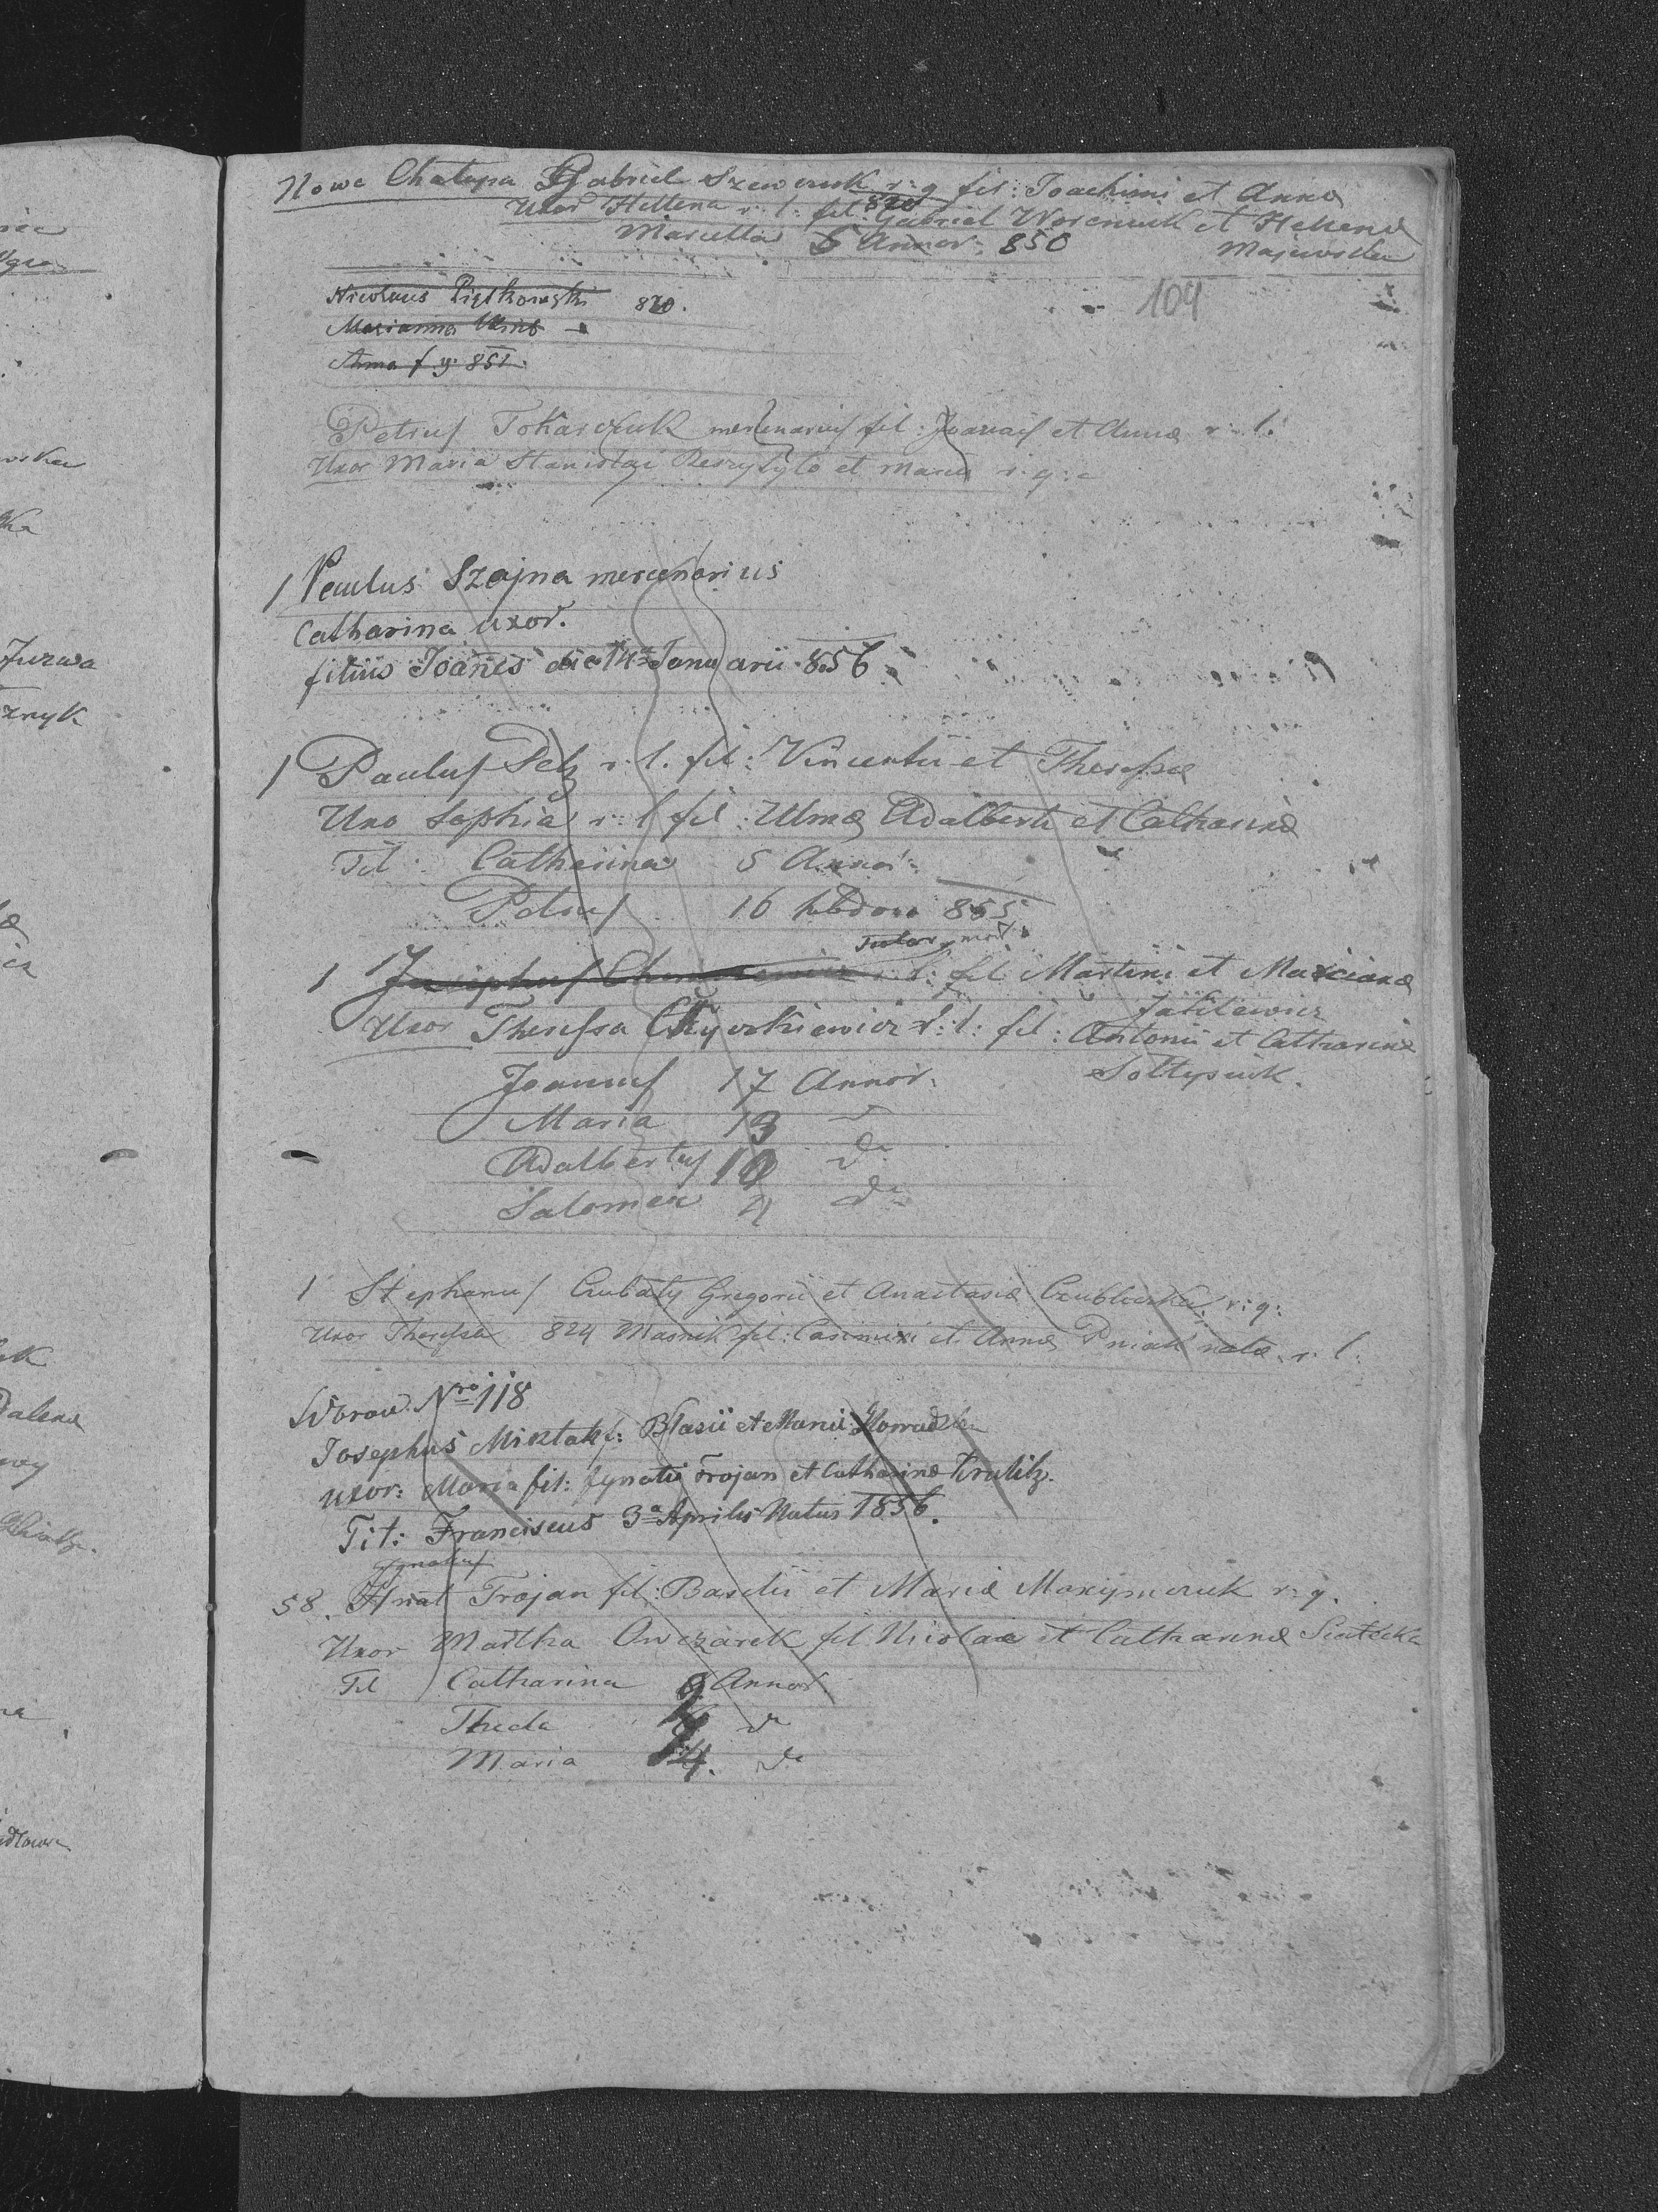 Nowa Chałupa Gabriel Szewczuk r: g fil: Joachimi et Anna
820
Uxor Hellena r: l: fil: Gabriel Worczuk et Hellena
Marcella 6 Annor. 850 Majewska
Nicolaus Piętkowski 820.
104
Marianna
Anna f. g. 851.
Petrus Tokarczuk mercenarius fil: Joanais et Anna r: l.
Uxor Maria Stanislai Reszytyło et Maria r: g:
1 Paulus Szajna mercenarius
Catharina uxor.
filius Joanes die 14 Januarii 856
1 Paulus Pelz r: l. fil: Vincentii et Theressa
Uxo Sophia r: l fil: Ulma Adalberti et Catharina
Fil: Catharina 5 Annor:
Petrus 16 hebdom 855
1 Josephus r: l: fil Martini et Marciana
Jasilewicz
Uxor Theressa r: l: fil: Antonii et Catharina
Sołtysiuk.
Joannes 17 Annor.
Maria 13
Adalbertus 10 do
Salomea 4 do
1 Stephanus Czubaty Gregorii et Anastasia r: g:
Uxor Theressa 824 Masnik fil: Casimiri et Anna Pniak nata r: l:
Nro 118
Josephus f: Blasii et Maria
uxor: Maria fil: Ignatii Trojan et Catharina
Fil: Franciscus 3a Aprilis Natus 1856.
Ignatius
58. Hnat Trojan fil: Basilii et Maria Maxymczuk r: g.
Uxor Martha Owczarek fil Nicolai et Catharina
Fil Catharina 9 Annor
Thecla 7 do
Maria 4. do